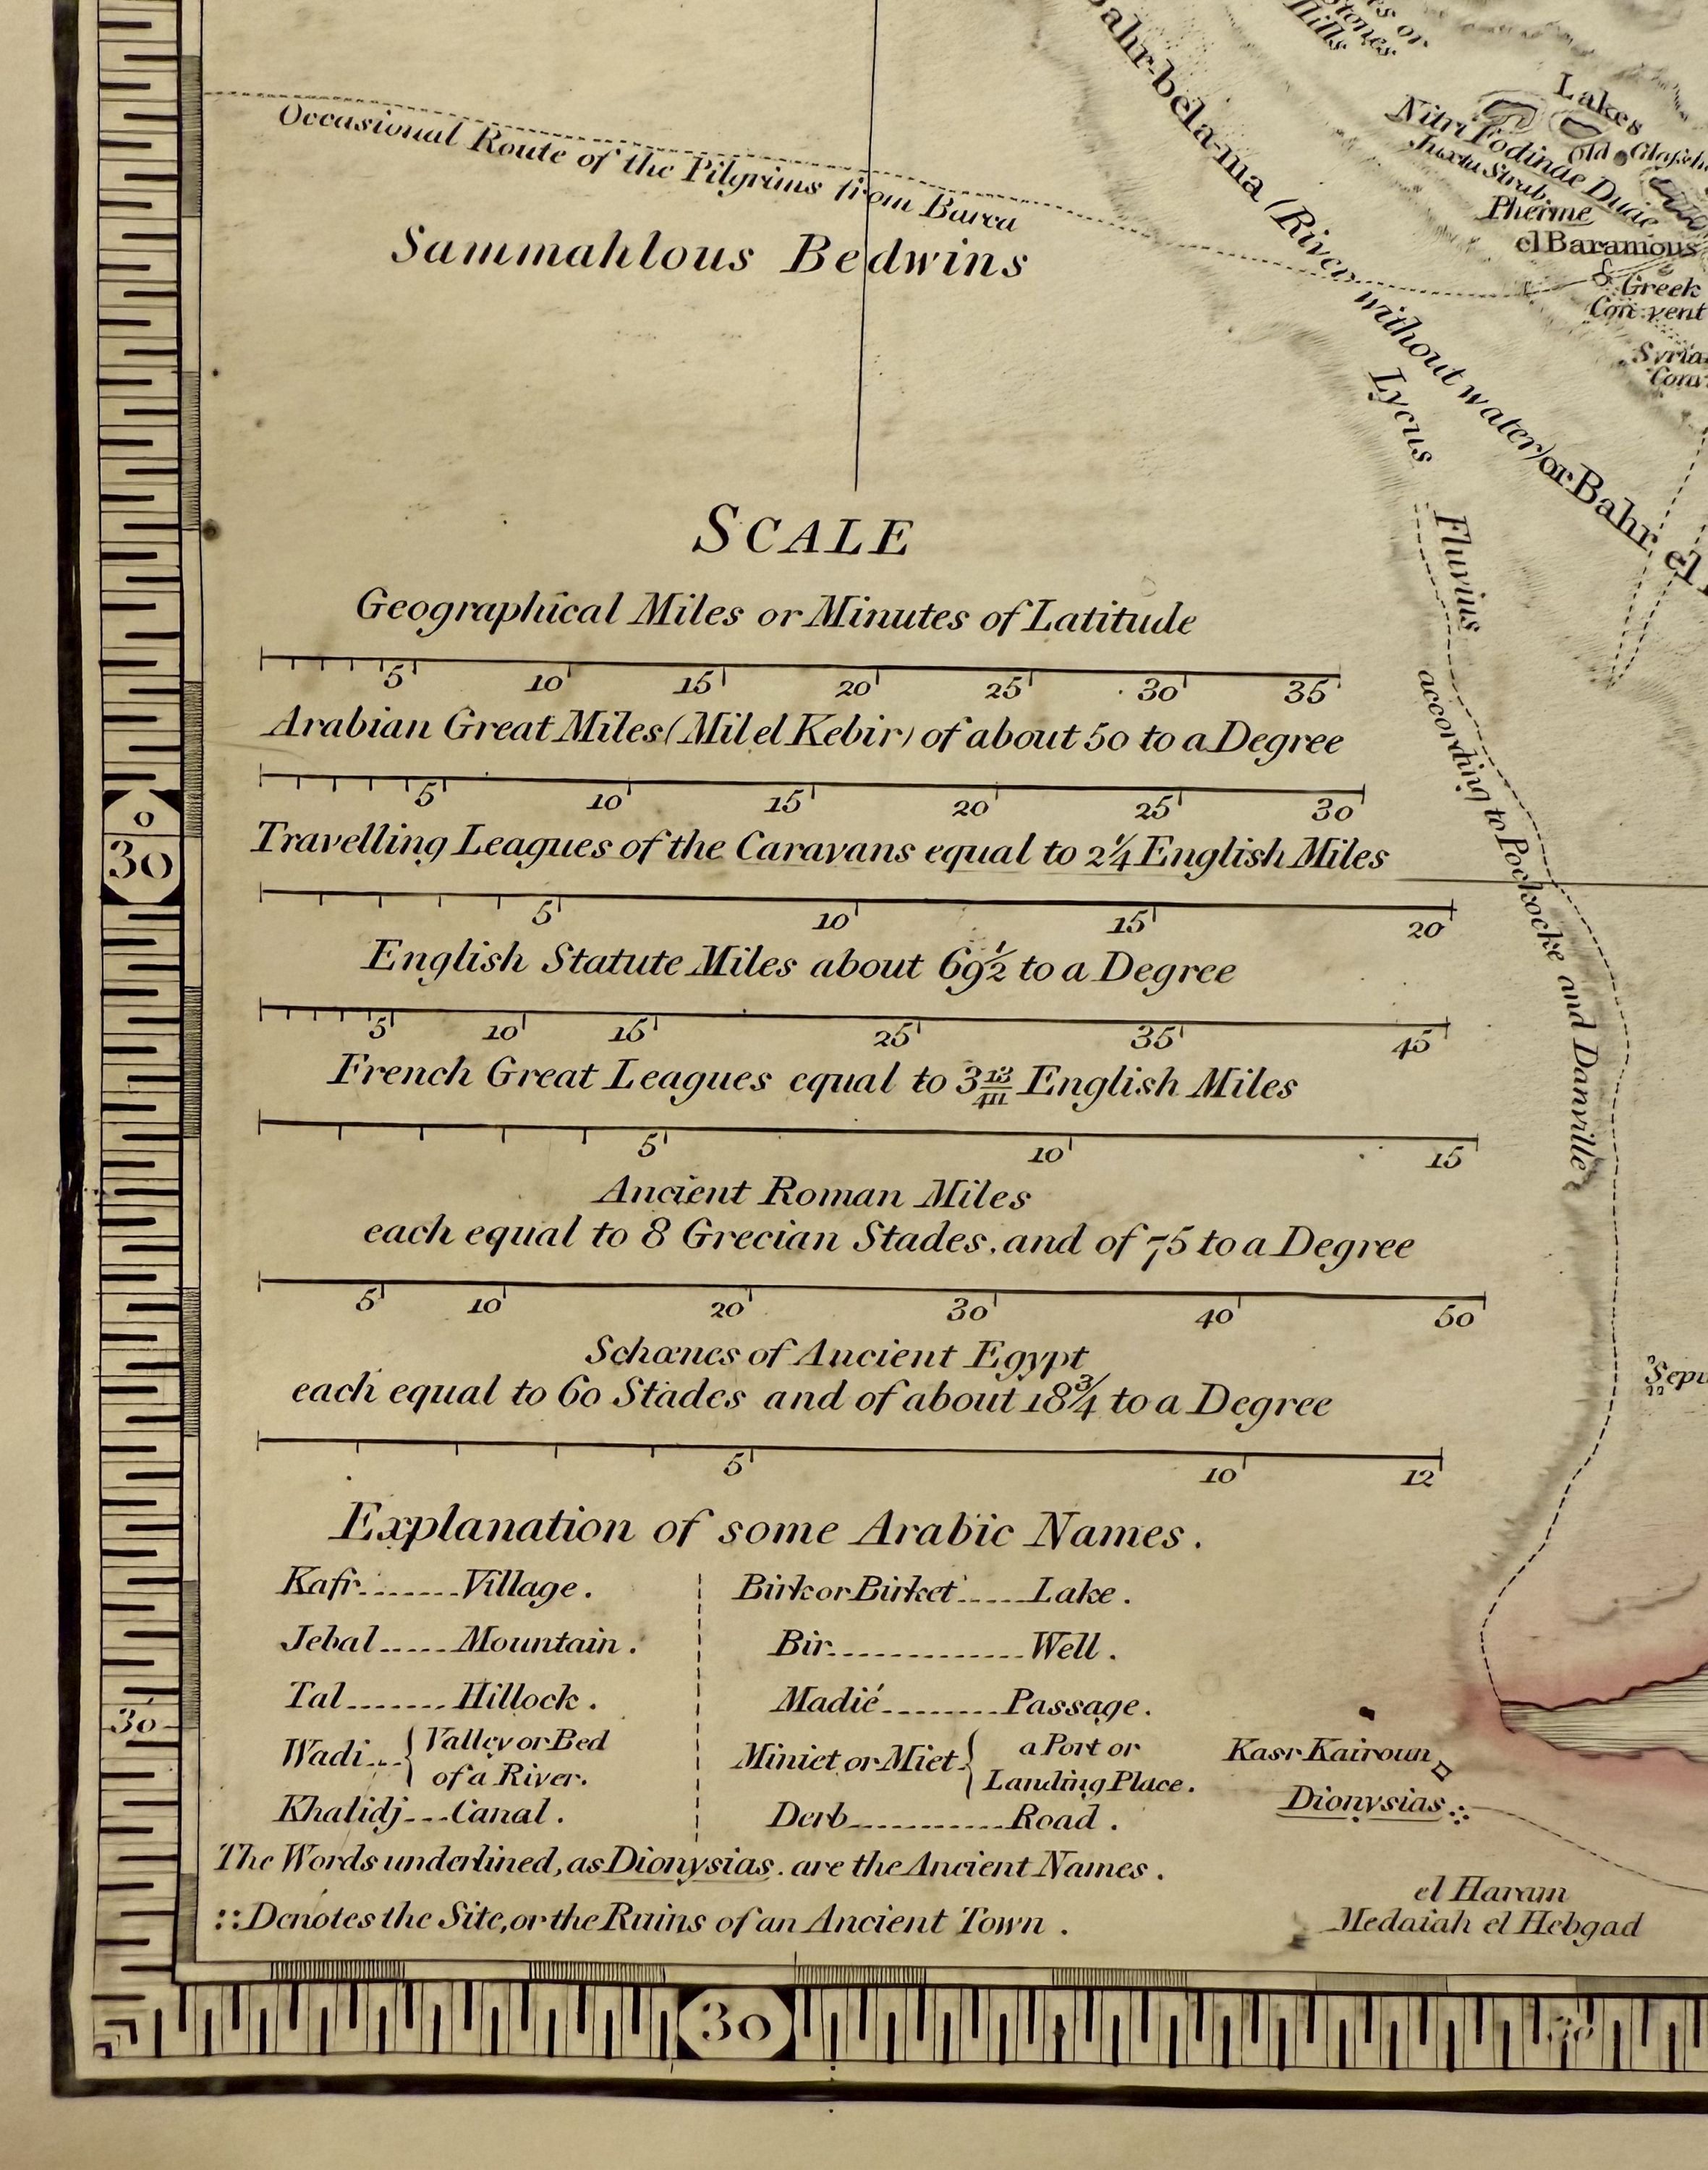 Hills
Stones
or
Bahr-bela-ma (River without water) or Bahr el
Lakes
Nitri Fodinde Duae
Old Glass
Juxta Strab.
Pherme
el Baramous
& Greek
Convent
Occasional Route of the Pilgrims from Barca
Sammahlous Bedwins
Lycus Fluvius according to Pockocke and Danville
SCALE
Geographical Miles or Minutes of Latitude
5 10 15 20 25 30 35
Arabian Great Miles (Mil el Kebir) of about 50 to a Degree
5 10 15 20 25 30
Travelling Leagues of the Caravans equal to 2¼ English Miles
5 10 15 20
English Statute Miles about 69½ to a Degree
5 10 15 25 35 45
French Great Leagues equal to 3 English Miles
5 10 15
Ancient Roman Miles
each equal to 8 Grecian Stades, and of 75 to a Degree
5 10 20 30 40 50
Schœnes of Ancient Egypt
each equal to 60 Stades and of about 18¾ to a Degree
5 10 12
Explanation of some Arabic Names.
Kafr.......Village.
Jebal.....Mountain.
Tal.......Hillock.
Wadi...{Valley or Bed
of a River.
Khalidj...Canal.
Birk or Birket.....Lake.
Bir.............Well.
Madié........Passage.
Miniet or Miet{a Port or
Landing Place.
Derb...........Road.
The Words underlined, as Dionysias. are the Ancient Names.
::Denotes the Site, or the Ruins of an Ancient Town.
Kasr Kairoun
Dionysias
el Haram
Medaiah el Hebgad
0
30
30
30
30